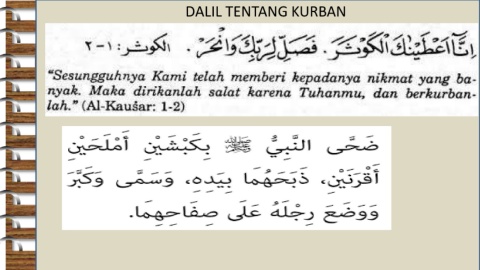 DALIL TENTANG KURBAN
اِنَّآ اَعْطَيْنٰكَ الْكَوْثَرَ. فَصَلِّ لِرَبِّكَ وَانْحَرْ. الكوثر: ١-٢
“Sesungguhnya Kami telah memberi kepadanya nikmat yang ba-
nyak. Maka dirikanlah salat karena Tuhanmu, dan berkurban-
lah.” (Al-Kauṡar: 1-2)
ضَحَّى النَّبِيُّ ﷺ بِكَبْشَيْنِ أَمْلَحَيْنِ
أَقْرَنَيْنِ، ذَبَحَهُمَا بِيَدِهِ، وَسَمَّى وَكَبَّرَ
وَوَضَعَ رِجْلَهُ عَلَى صِفَاحِهِمَا.